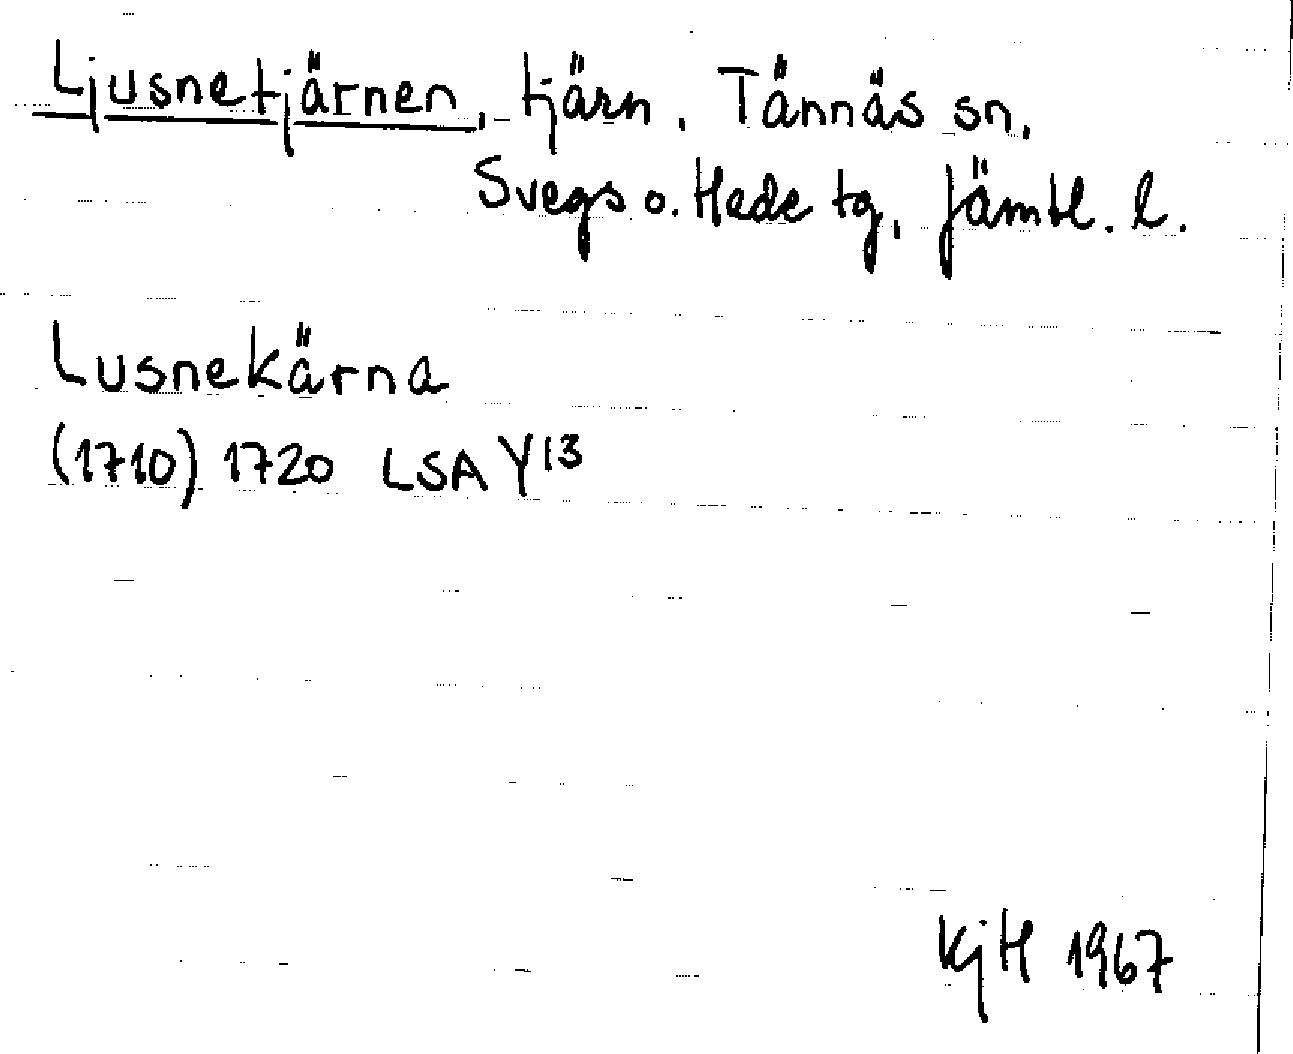 Ljusnetjärnen, tjärn, Tännäs sn,
Svegs o. Hede tg, Jämtl. l.
Lusnekärna
(1710) 1720 LSA Y13
KjH 1967